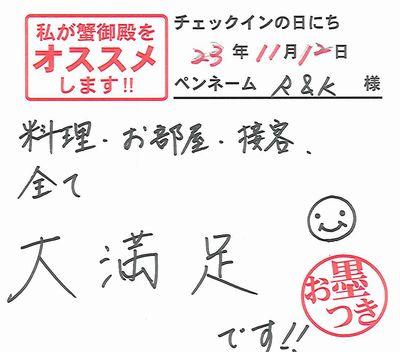 私が蟹御殿を
オススメ
します!!
チェックインの日にち
23年11月12日
ペンネーム R&K 様
料理・お部屋・接客、
全て
大満足
です!!
お墨
つき